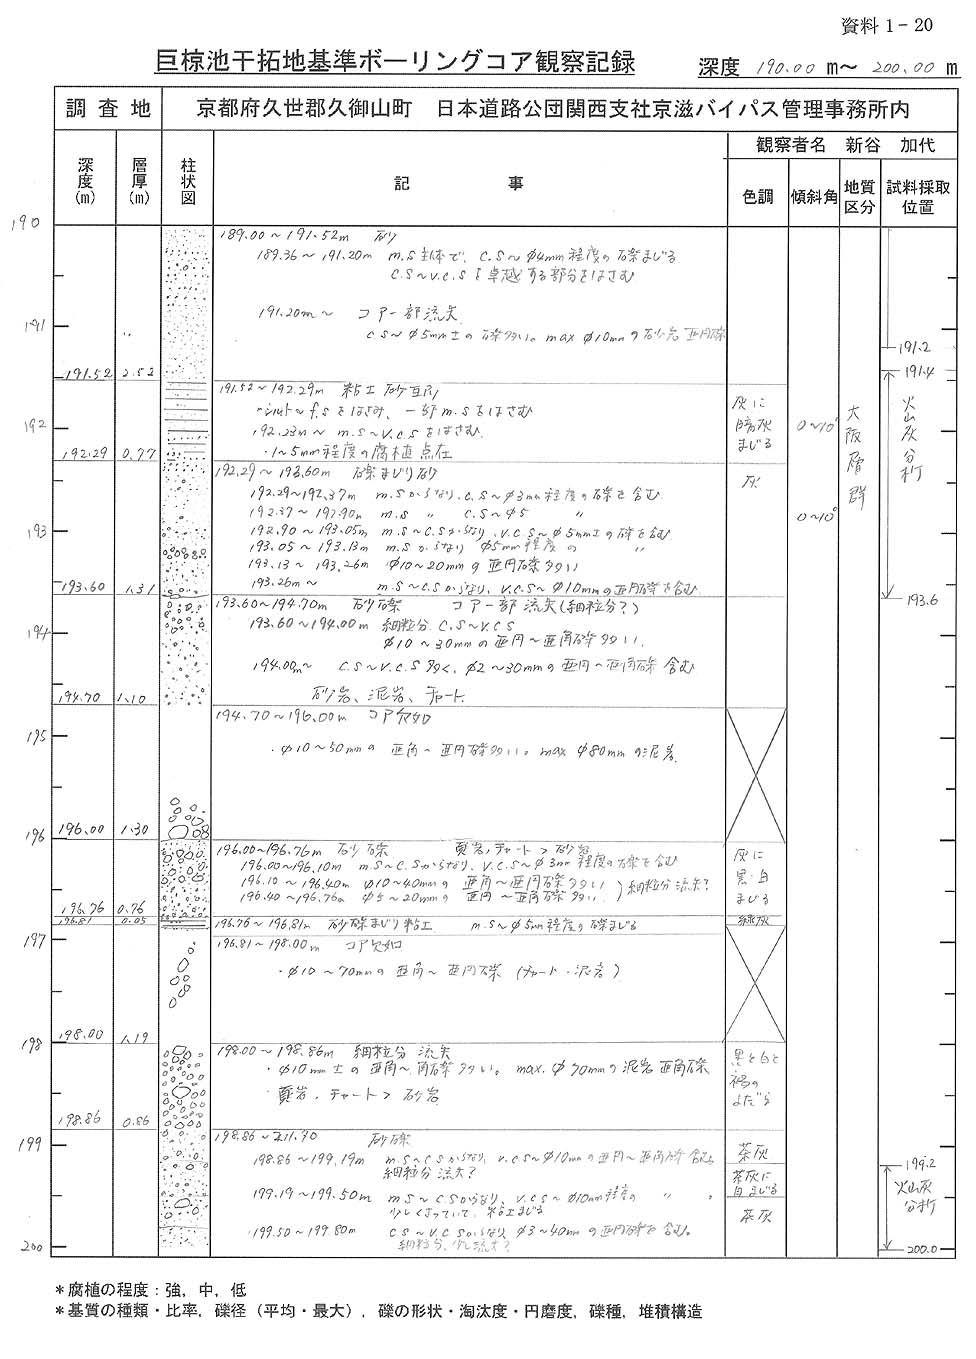 資料1-20
巨椋池干拓地基準ボーリングコア観察記録
深度 190.00 m～ 200.00 m
調査地 京都府久世郡久御山町 日本道路公団関西支社京滋バイパス管理事務所内
観察者名 新谷 加代
深度(m) 層厚(m) 柱状図 記事 色調 傾斜角 地質区分 試料採取位置
190
189.00～191.52m 砂
189.36～191.20m m.s主体で、c.s～φ4mm程度の礫まじる
c.s～v.c.sを卓越する部分をはさむ
191.20m～ コア一部流失
191
c.s～φ5mm±の礫多い。max φ10mmの砂岩亜円礫
191.2
191.52 2.52
191.4
191.52～192.29m 粘土砂互層
silt～f.sをはさみ、一部m.sをはさむ
192.23m～ m.s～v.c.sをはさむ
・1～5mm程度の腐植点在
灰に暗灰まじる
0～10°
大阪層群
火山灰分析
192
192.29 0.77
192.29～193.60m 礫まじり砂
灰
192.29～192.37m m.sからなり、c.s～φ3mm程度の礫を含む
192.37～192.90m m.s 〃 c.s～φ5 〃
0～10°
192.90～193.05m m.s～c.sからなり、v.c.s～φ5mm±の礫を含む
193
193.05～193.13m m.sからなり φ5mm程度の 〃
193.13～193.26m φ10～20mmの亜円礫多い
193.26m～ m.s～c.sからなり、v.c.s～φ10mmの亜円礫を含む
193.60 1.31
193.6
193.60～194.70m 砂礫 コア一部流失(細粒分?)
193.60～194.00m 細粒分 c.s～v.c.s
194
φ10～30mmの亜円～亜角礫多い
194.00m～ c.s～v.c.s多く、φ2～30mmの亜円～亜角礫含む
194.70 1.10
砂岩、泥岩、チャート
194.70～196.00m コア欠如
195
・φ10～50mmの亜角～亜円礫多い。max φ80mmの泥岩
196
196.00 1.30
196.00～196.76m 砂礫 頁岩,チャート＞砂岩
196.00～196.10m m.s～c.sからなり、v.c.s～φ3mm程度の礫を含む
196.10～196.40m φ10～40mmの亜角～亜円礫多い
細粒分流失?
196.40～196.76m φ5～20mmの亜円～亜角礫多い
灰に黒・白まじる
196.76 0.76
196.81 0.05
196.76～196.81m 砂礫まじり粘土 m.s～φ5mm程度の礫まじる
緑灰
197
196.81～198.00m コア欠如
・φ10～70mmの亜角～亜円礫(チャート・泥岩)
198
198.00 1.19
198.00～198.86m 細粒分流失
・φ10mm±の亜角～角礫多い。max. φ70mmの泥岩亜角礫
・頁岩,チャート＞砂岩
黒と白と褐の
198.86 0.86
198.86～211.90 砂礫
199
198.86～199.19m m.s～c.sからなり、v.c.s～φ10mmの亜円～亜角礫含む。
細粒分流失?
茶灰
199.2
199.19～199.50m m.s～c.sからなり、v.c.s～φ10mm程度の 〃 〃
粘土まじる
茶灰に白まじる
火山灰分析
199.50～199.80m c.s～v.c.sからなり、φ3～40mmの亜円礫を含む。
細粒分、少し流失?
茶灰
200
200.0
＊腐植の程度：強，中，低
＊基質の種類・比率，礫径（平均・最大），礫の形状・淘汰度・円磨度，礫種，堆積構造